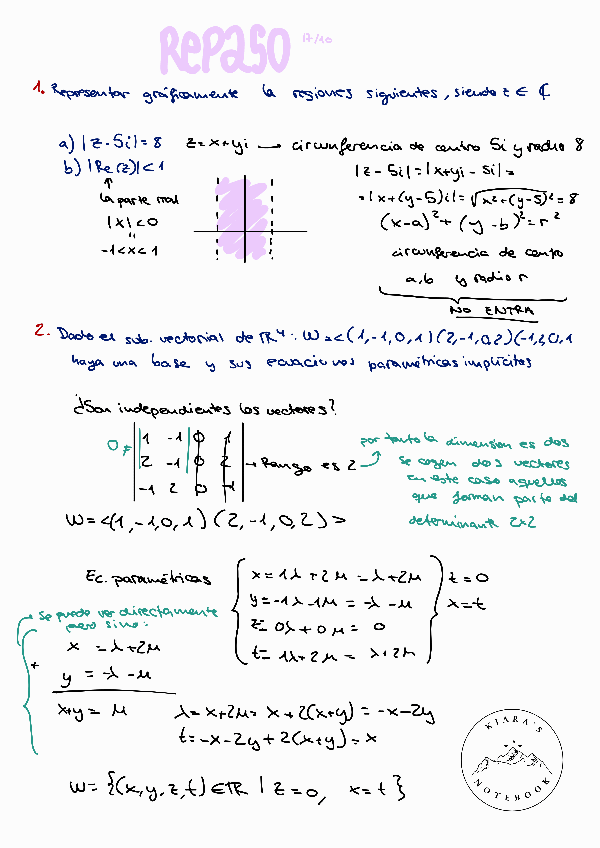 Repaso 17/10
1. Representar gráficamente la regiones siguientes, siendo z ∈ ℂ
a) |z-5i|=8 z=x+yi → circunferencia de centro 5i y radio 8
b) |Re(z)|<1 |z-5i|=|x+yi-5i|=
↑ =|x+(y-5)i|=√x²+(y-5)²=8
la parte real (x-a)²+(y-b)²=r²
|x|<0
-1<x<1
circunferencia de centro
a,b y radio r
NO ENTRA
2. Dado el sub. vectorial de ℝ⁴: W=<(1,-1,0,1)(2,-1,0,2)(-1,2,0,1
haya una base y sus ecuaciones paramétricas implícitas
¿Son independientes los vectores?
0≠ | 1 -1 0 1 |
| 2 -1 0 2 | → Rango es 2
| -1 2 0 -1 |
por tanto la dimension es dos
se cogen dos vectores
en este caso aquellos
que forman parte del
determinante 2x2
W=<(1,-1,0,1)(2,-1,0,2)>
Ec. paramétricas
x=1λ+2μ=λ+2μ
y=-1λ-1μ=-λ-μ
z=0λ+0μ=0
t=1λ+2μ=λ+2μ
t=0
x=t
se puede ver directamente
pero sino:
x=λ+2μ
+
y=-λ-μ
x+y=μ λ=x+2μ=x+2(x+y)=-x-2y
t=-x-2y+2(x+y)=x
W={(x,y,z,t)∈ℝ | z=0, x=t}
KIARA'S
NOTEBOOK